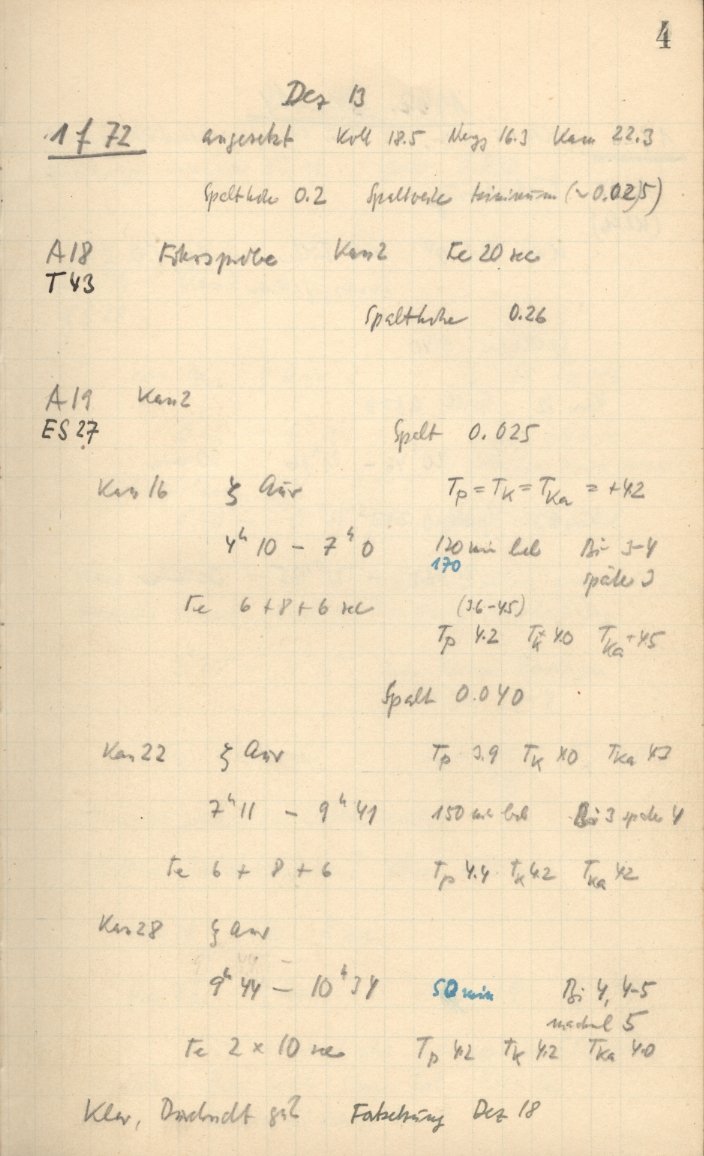 4
Dez 13
1 f 72 angesetzt Koll 18.5 Neg 16.3 Kam 22.3
Spalthöhe 0.2 Spaltweite (~0.025)
A18 Fokusprobe Kas 2 Fe 20 sec
T 43
Spalthöhe 0.26
A19 Kas 2
ES 27
Spalt 0.025
Kas 16 ξ Aur Tp = TK = TKa = +42
4h 10 – 7h 0 120 min bel Bi 3-4
170 später 3
Fe 6 + 8 + 6 sec (36-45)
Tp 4.2 TK 40 TKa +45
Spalt 0.040
Kas 22 ξ Aur Tp 3.9 TK 40 TKa 43
7h 11 – 9h 41 150 min bel Bi 3 später 4
Fe 6 + 8 + 6 Tp 4.4 TK 42 TKa 42
Kas 28 ξ Aur
9h 44 – 10h 34 50 min Bi 4, 4-5
5
Fe 2 × 10 sec Tp 42 TK 42 TKa 40
Klar, Durchsicht gut Fortsetzung Dez 18